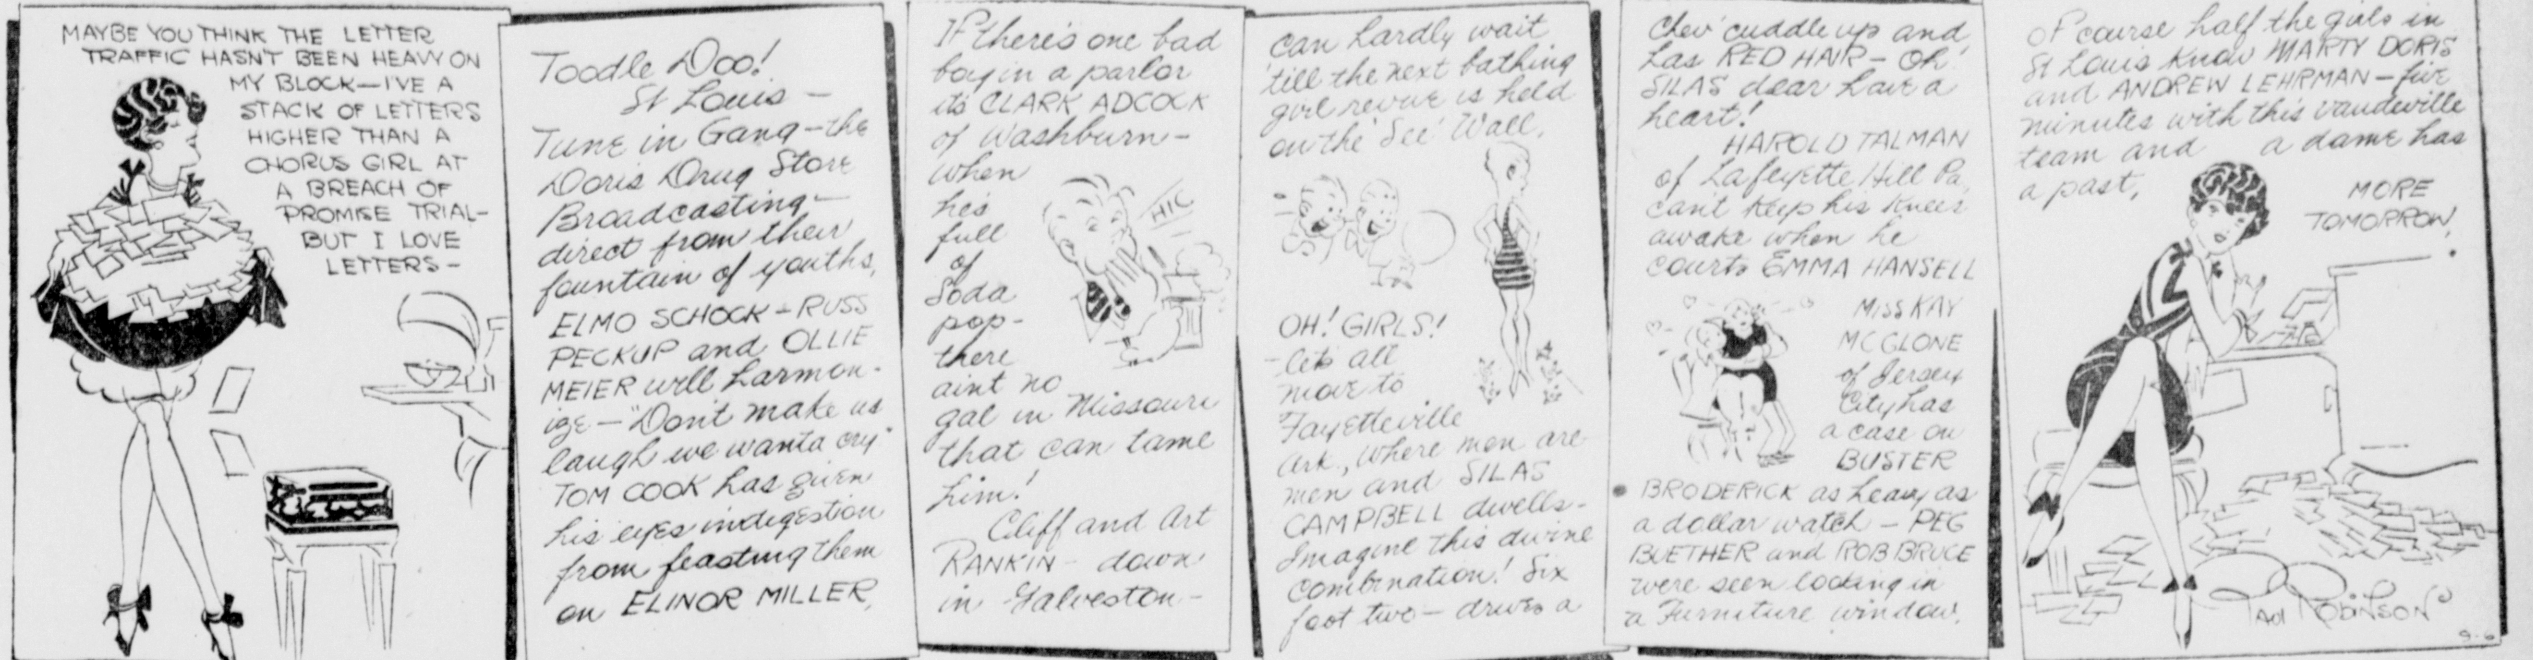 MAYBE YOU THINK THE LETTER
TRAFFIC HASN'T BEEN HEAVY ON
MY BLOCK—I'VE A
STACK OF LETTERS
HIGHER THAN A
CHORUS GIRL AT
A BREACH OF
PROMISE TRIAL—
BUT I LOVE
LETTERS—
Toodle Doo!
St Louis—
Tune in Gang—the
Doris Drug Store
Broadcasting—
direct from their
fountain of youths,
ELMO SCHOCK - RUSS
PECKUP and OLLIE
MEIER will harmon-
ize—"Don't make us
laugh we wanta cry"
TOM COOK has given
his eyes indigestion
from feasting them
on ELINOR MILLER,
If there's one bad
boy in a parlor
its CLARK ADCOCK
of Washburn—
when
he's
full
of
Soda
pop-
there
aint no
gal in Missouri
that can tame
him!
HIC
Cliff and Art
RANKIN - down
in Galveston—
can hardly wait
'till the next bathing
girl revue is held
on the 'See' Wall.
OH! GIRLS!
-let's all
move to
Fayetteville
Ark., where men are
men and SILAS
CAMPBELL dwells-
Imagine this divine
combination! Six
foot two — drives a
Chev' cuddle up and
has RED HAIR — Oh
SILAS dear have a
heart!
HAROLD TALMAN
of Lafeyette Hill Pa,
cant keep his knees
awake when he
courts EMMA HANSELL
MISS KAY
MCGLONE
of Jersey
City has
a case on
BUSTER
BRODERICK as heavy as
a dollar watch — PEG
BUETHER and ROB BRUCE
were seen looking in
a Furniture window.
of course half the girls in
St Louis know MARTY DORIS
and ANDREW LEHRMAN—five
minutes with this vaudeville
team and a dame has
a past,
MORE
TOMORROW,
ROBINSON
9-6